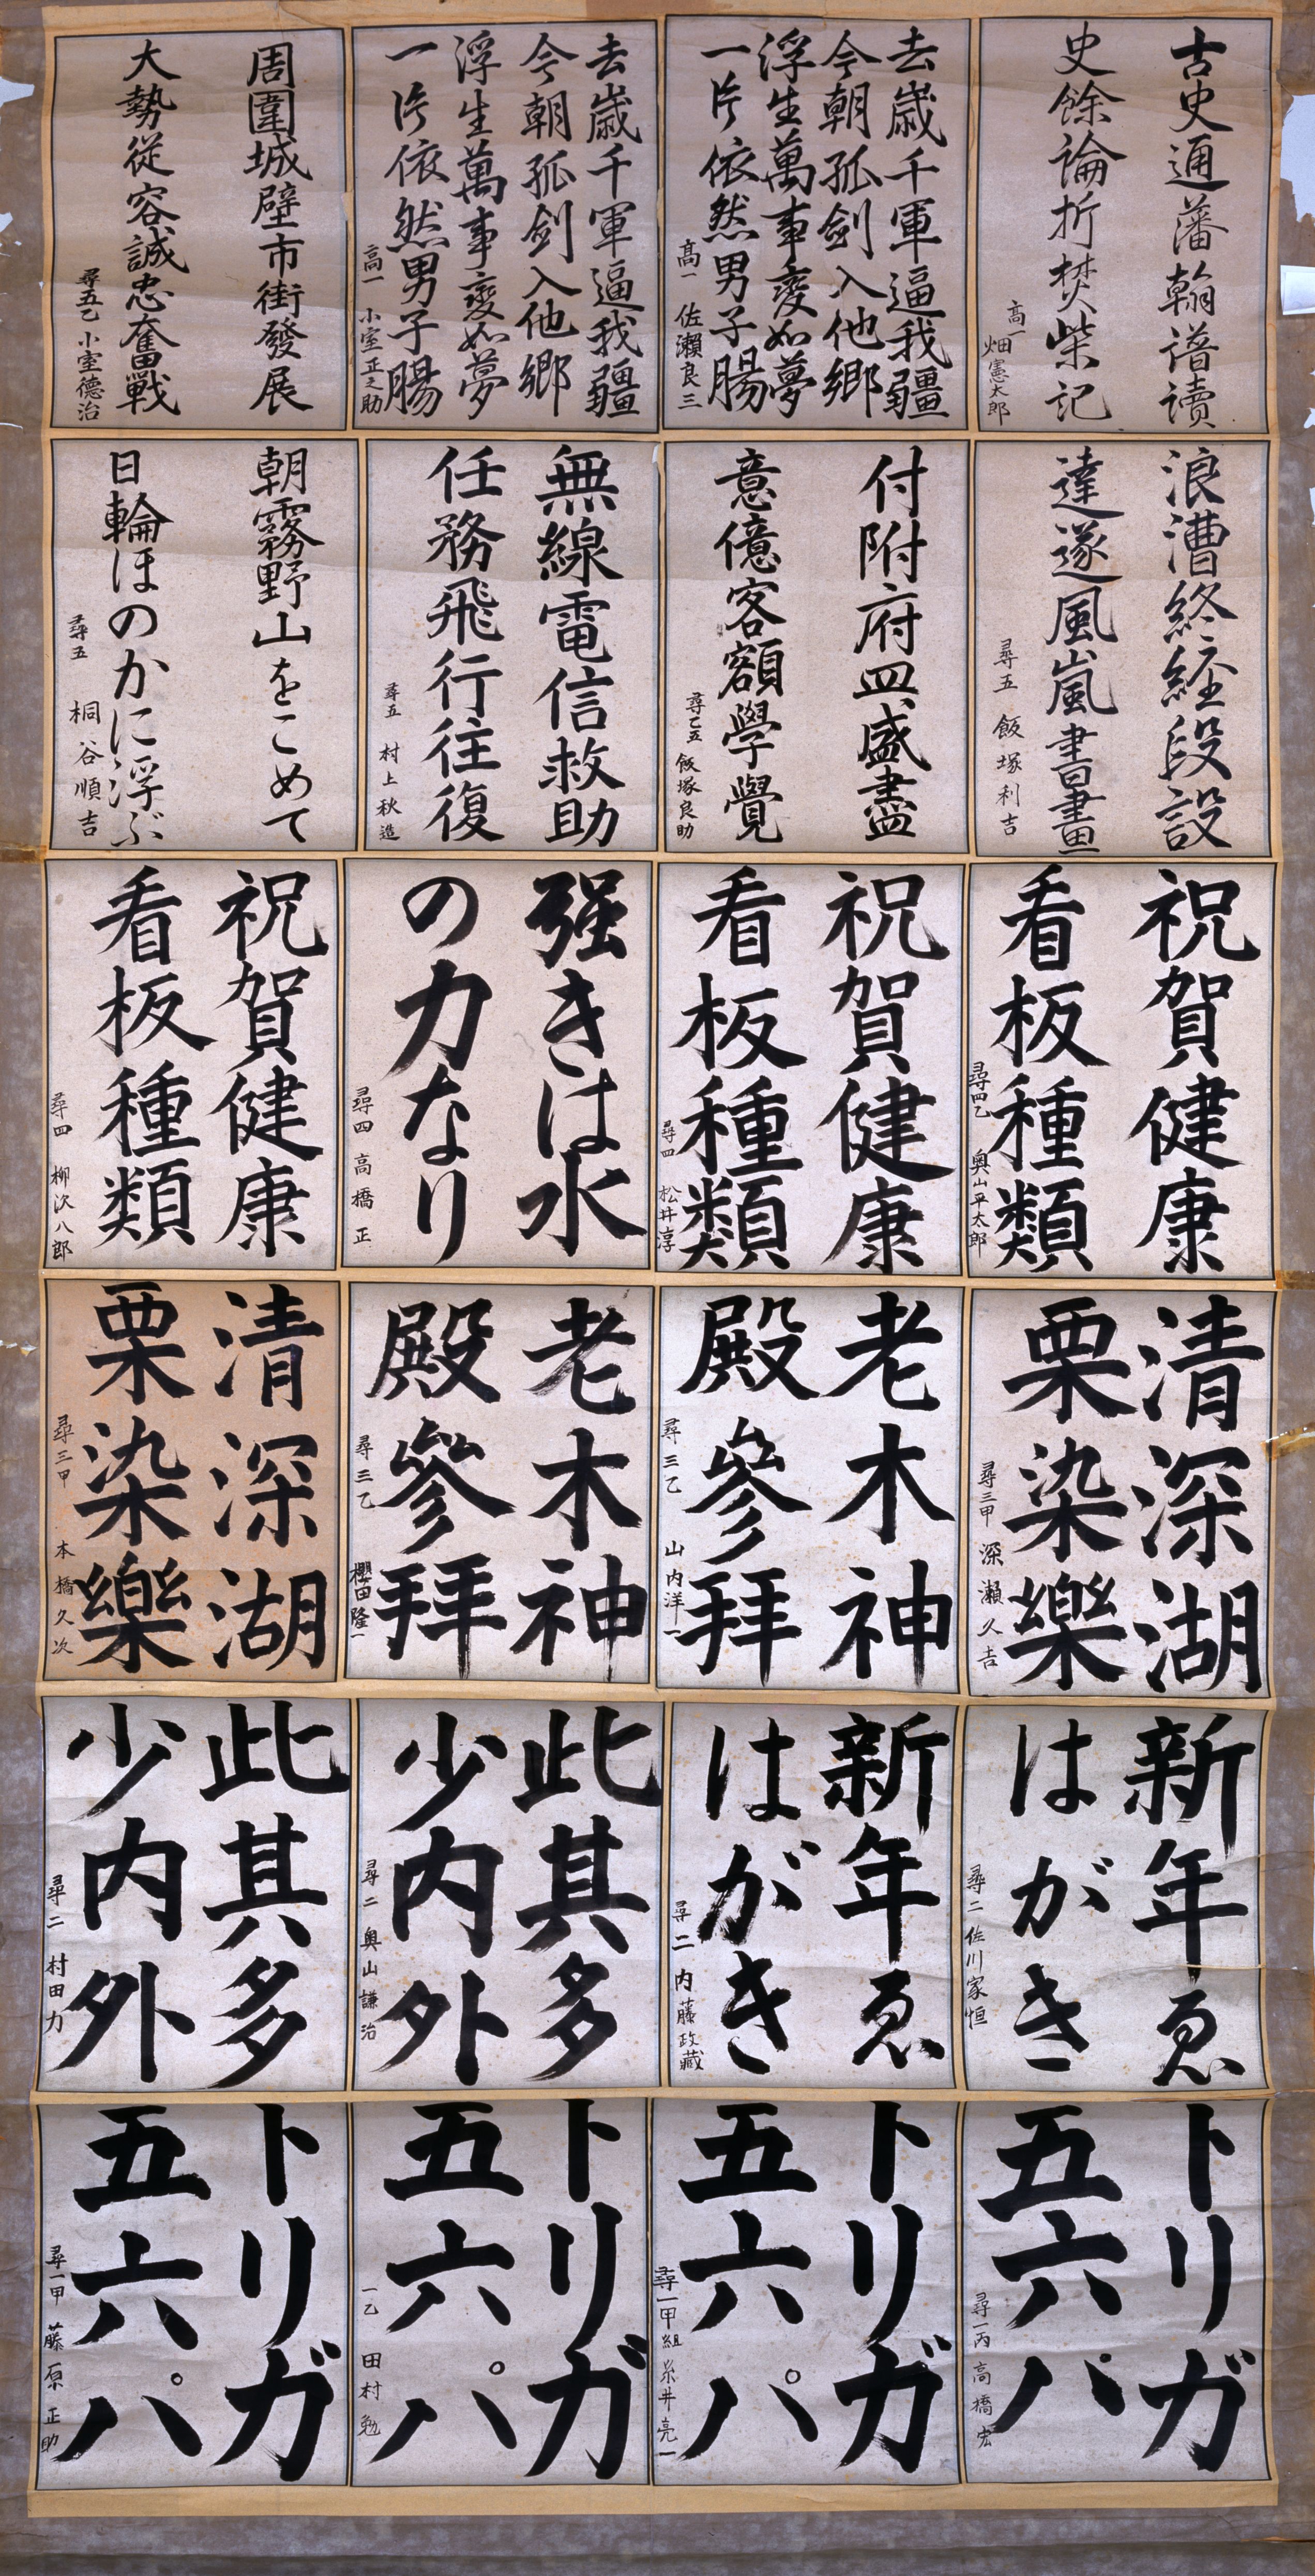 古史通藩翰譜讀
史餘論折焚柴記
高一 畑憲太郎
去歳千軍逼我疆
今朝孤劍入他鄉
浮生萬事變如夢
一片依然男子腸
高一 佐瀬良三
去歳千軍逼我疆
今朝孤劍入他鄉
浮生萬事變如夢
一片依然男子腸
高一 小室正之助
周圍城壁市街發展
大勢從容誠忠奮戰
尋五乙 小室德治
浪漕終経段設
達遂風嵐書畫
尋五 飯塚利吉
付附府皿盛盡
意億客額學覺
尋乙五 飯塚良助
無線電信救助
任務飛行往復
尋五 村上秋造
朝霧野山をこめて
日輪ほのかに浮ぶ
尋五 桐谷順吉
祝賀健康
看板種類
尋四乙 奥山平太郎
祝賀健康
看板種類
尋四 松井淳
强きは水
の力なり
尋四 高橋正
祝賀健康
看板種類
尋四 柳沢八郎
清深湖
栗染樂
尋三甲 深瀬久吉
老木神
殿參拜
尋三乙 山内洋一
老木神
殿參拜
尋三乙 櫻田隆一
清深湖
栗染樂
尋三甲 本橋久次
新年ゑ
はがき
尋二 佐川家恒
新年ゑ
はがき
尋二 内藤政藏
此其多
少内外
尋二 奥山謙治
此其多
少内外
尋二 村田力
トリガ
五六パ
尋一丙 高橋宏
トリガ
五六パ
尋一甲組 糸井亮一
トリガ
五六パ
一乙 田村勉
トリガ
五六パ
尋一甲 藤原正助